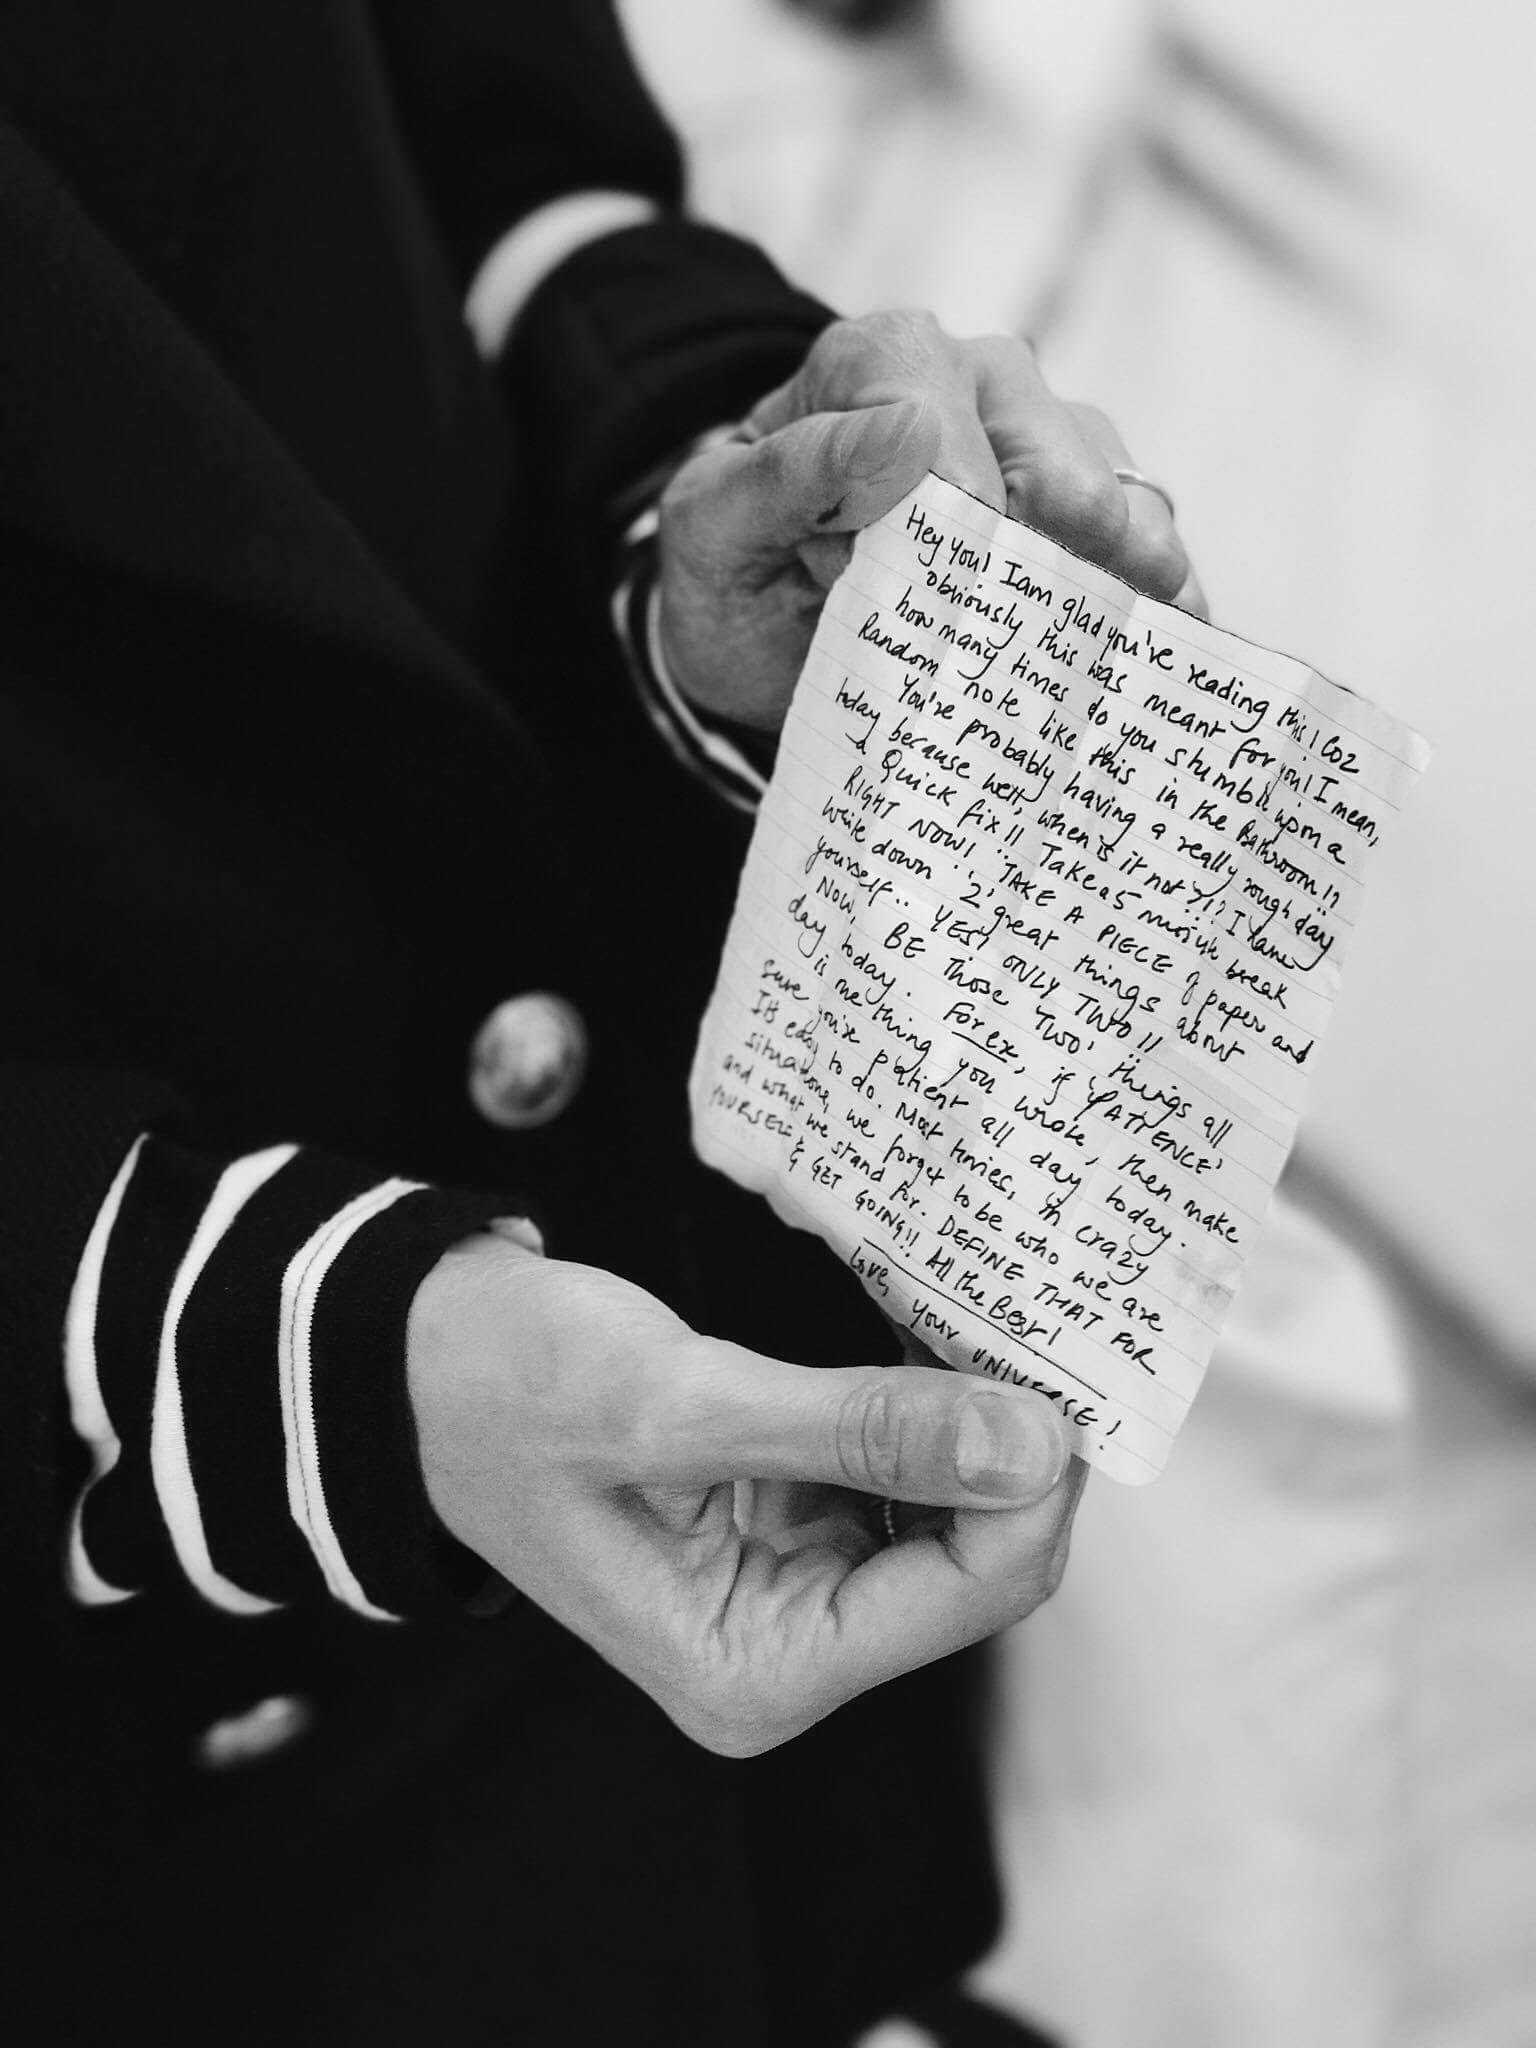 Hey you! I am glad you're reading this! Coz
obviously this was meant for you! I mean,
how many times do you stumble upon a
Random note like this in the Bathroom!?
You're probably having a really rough day
today because well, when is it not?!? I have
a Quick fix!! Take a 5 minute break
RIGHT NOW! TAKE A PIECE of paper and
write down '2' great things about
yourself.. YES! ONLY TWO!!
Now, BE Those 'TWO' things all
day today. For ex, if 'PATIENCE'
is one thing you wrote, then make
sure you're patient all day today.
Its easy to do. Most times, in crazy
situations, we forget to be who we are
and what we stand for. DEFINE THAT FOR
YOURSELF & GET GOING!! All the Best!
Love, your UNIVERSE!